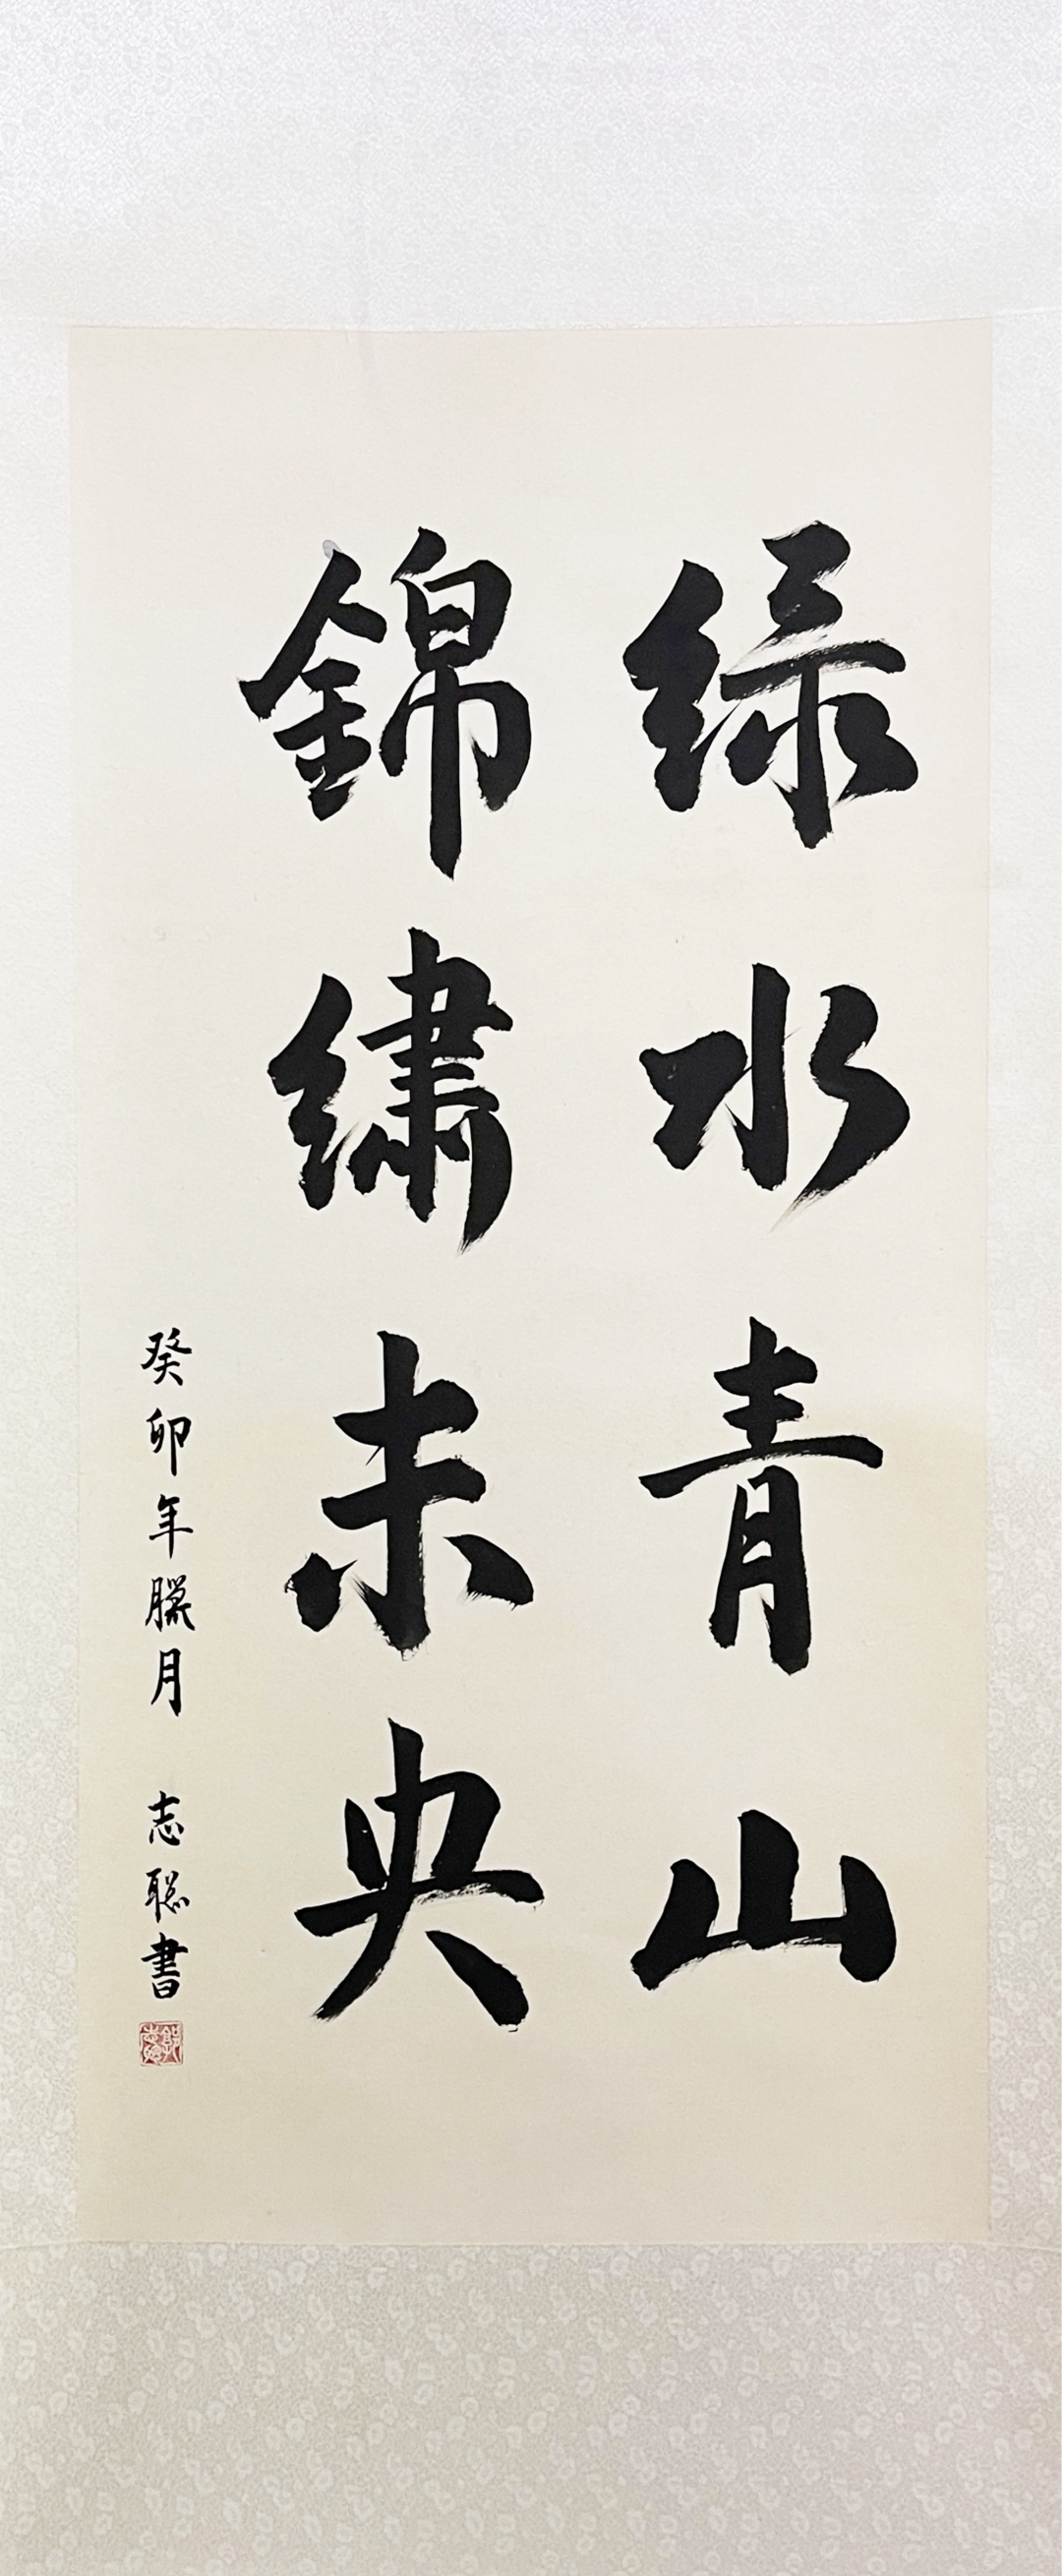 绿水青山
錦繡未央
癸卯年臘月 志聰書